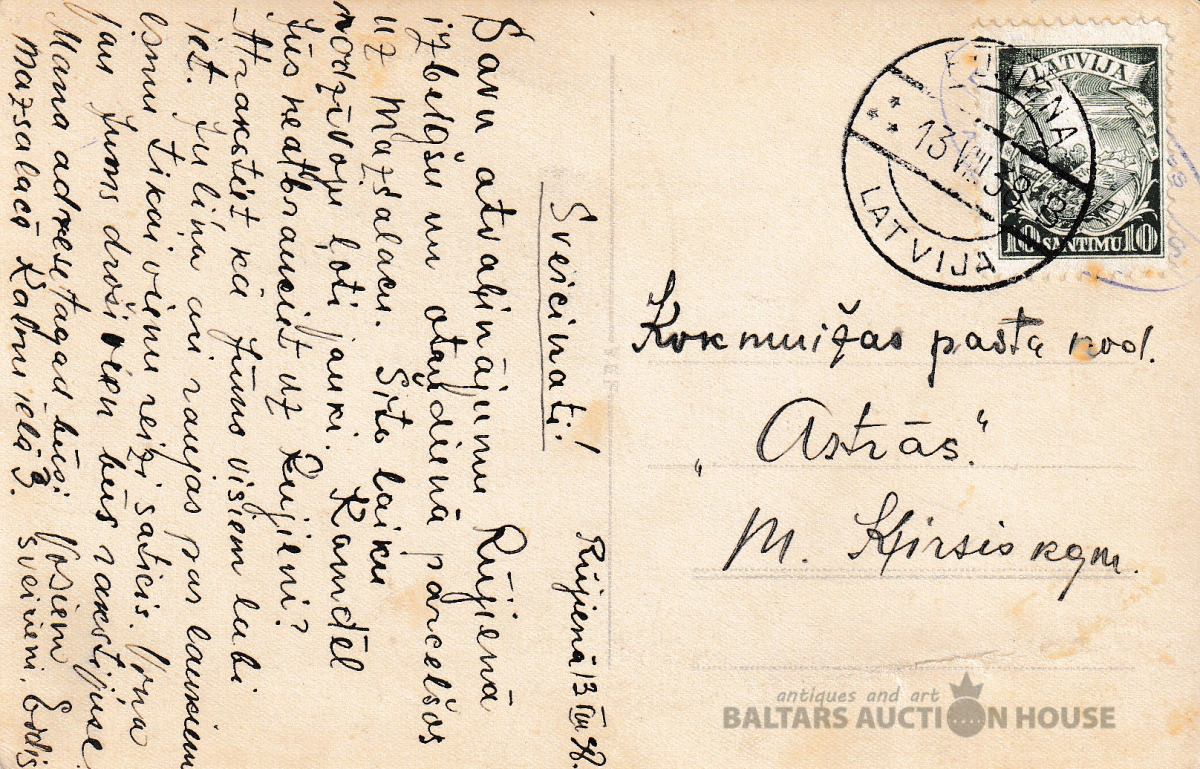 Rūjienā 13 VIII 38.
Sveicināti!
Savu atvaļinājumu Rūjienā
izbeigšu un otrdienā pārcelšos
uz Mazsalacu. Šito laiku
nodzīvoju ļoti jauki. Kamdēļ
Jūs neatbraucāt uz Rujieni?
Atrakstiet kā Jums visiem labi
iet. Juliņu arī raujas par laukiem
esmu tikai vienu reizi saticis. Viņa
jau Jums droši vien būs rakstījuse.
Mana adrese tagad būs: Visiem
Mazsalacā Kalnu ielā 3. sveicieni. Erdis
LATVIJA
10 SANTIMU 10
RUJIENA
13 VIII 38
LATVIJA
Kokmuižas pasta nod.
„Astrās."
M. Ķirsis kgm.
antiques and art
BALTARS AUCTION HOUSE